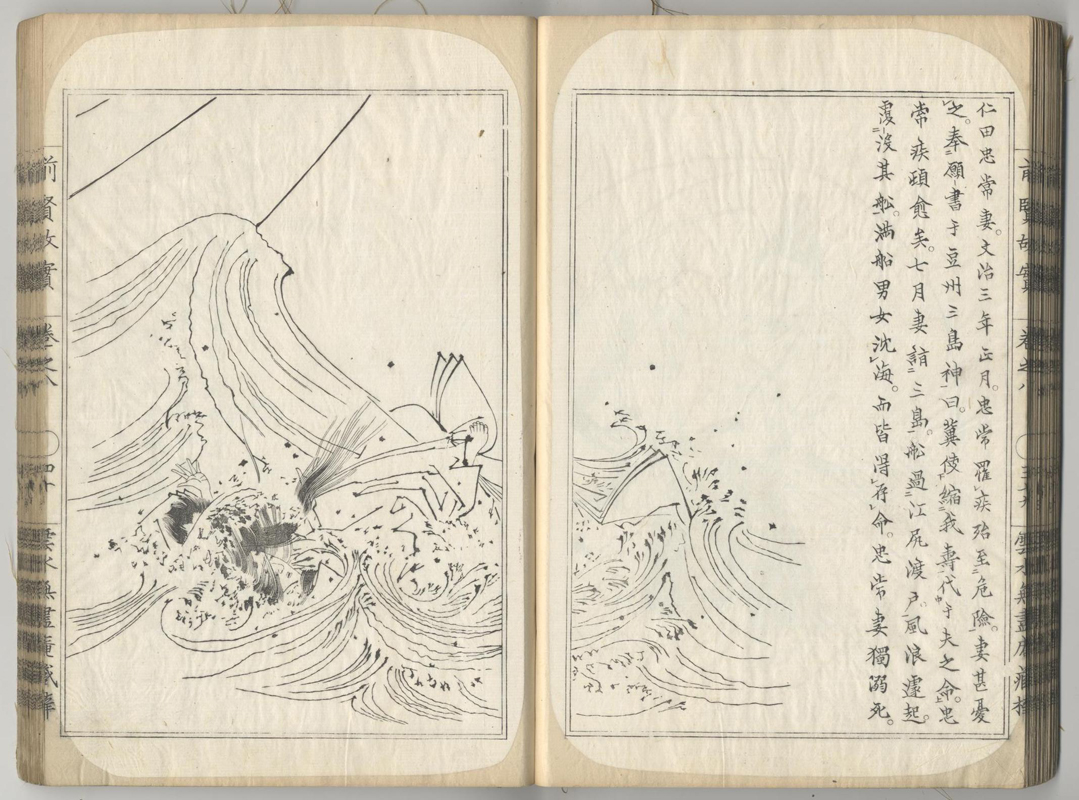 仁田忠常妻。文治三年正月。忠常罹疾殆至危險。妻甚憂
之。奉願書于豆州三島神曰。冀使縮我壽代于夫之命。忠
常疾頓愈矣。七月妻詣三島。船過江尻渡戸風浪遽起。
覆沒其船。満船男女沈海。而皆得存命。忠常妻獨溺死。
前賢故實
卷之八
雲水無盡庵藏梓
前賢故實
卷之八
雲水無盡庵藏梓